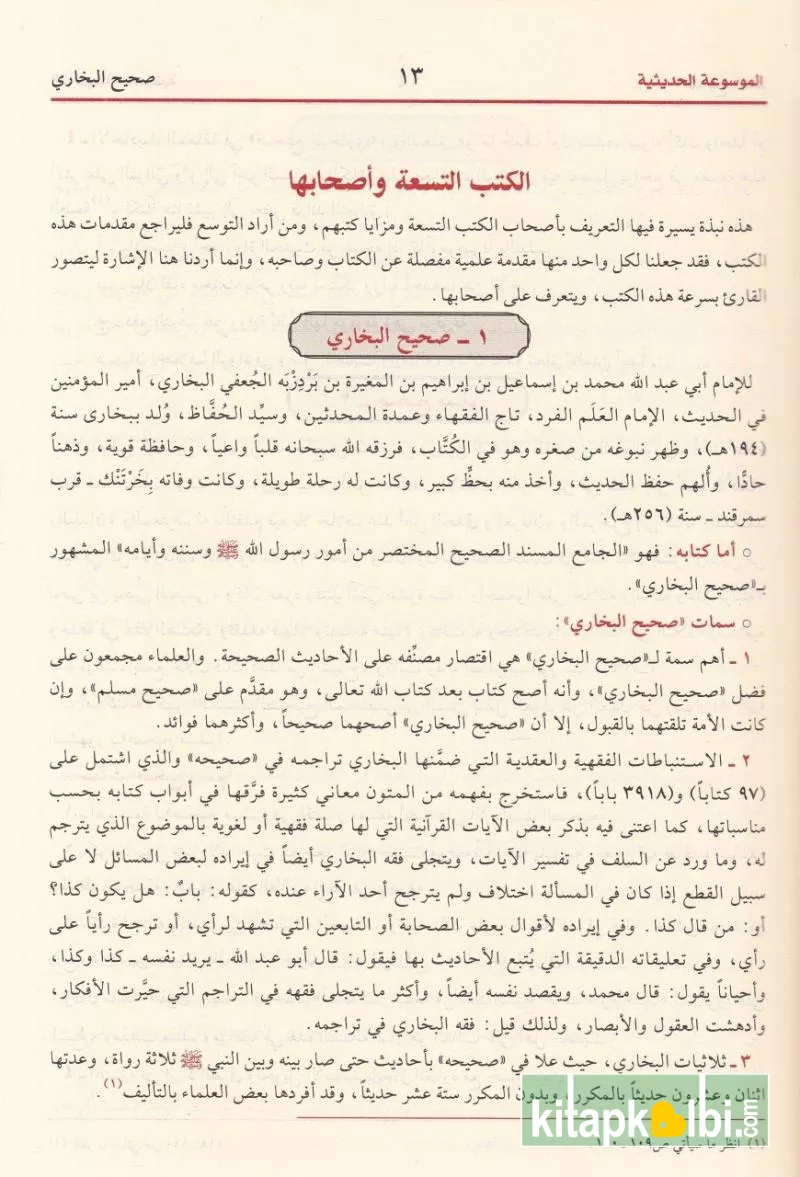 الموسوعة الحديثية
١٣
صحيح البخاري
الكتب التسعة وأصحابها
هذه نبذة يسيرة فيها التعريف بأصحاب الكتب التسعة ومزايا كتبهم، ومن أراد التوسع فليراجع مقدمات هذه
الكتب، فقد جعلنا لكل واحد منها مقدمة علمية مفصلة عن الكتاب وصاحبه، وإنما أردنا هنا الإشارة ليتصور
القارئ بسرعة هذه الكتب، ويتعرف على أصحابها.
١ ـ صحيح البخاري
للإمام أبي عبد الله محمد بن إسماعيل بن إبراهيم بن المغيرة بن بَرْدِزْبَه الجُعفي البخاري، أمير المؤمنين
في الحديث، الإمام العَلَم الفرد، تاج الفقهاء وعمدة المحدثين، وسيِّد الحُفَّاظ، وُلد ببخارى سنة
(١٩٤هـ)، وظهر نبوغه من صغره وهو في الكُتَّاب، فرزقه الله سبحانه قلباً واعياً، وحافظة قوية، وذهناً
حادًّا، وأُلهم حفظ الحديث، وأخذ منه بحظٍّ كبير، وكانت له رحلة طويلة، وكانت وفاته بِخَرْتَنْك ـ قرب
سمرقند ـ سنة (٢٥٦هـ).
○ أما كتابه: فهو «الجامع المسند الصحيح المختصر من أمور رسول الله ﷺ وسننه وأيامه» المشهور
بـ«صحيح البخاري».
○ سمات «صحيح البخاري»:
١ ـ أهم سمة لـ«صحيح البخاري» هي اقتصار مصنِّفه على الأحاديث الصحيحة. والعلماء مجمعون على
فضل «صحيح البخاري»، وأنه أصح كتاب بعد كتاب الله تعالى، وهو مقدَّم على «صحيح مسلم»، وإن
كانت الأمة تلقتهما بالقبول، إلا أن «صحيح البخاري» أصحهما صحيحاً، وأكثرهما فوائد.
٢ ـ الاستنباطات الفقهية والعقدية التي ضمَّنها البخاري تراجمه في «صحيحه» والذي اشتمل على
(٩٧ كتاباً) و(٣٩١٨ باباً)، فاستخرج بفهمه من المتون معاني كثيرة فرَّقها في أبواب كتابه بحسب
مناسباتها، كما اعتنى فيه بذكر بعض الآيات القرآنية التي لها صلة فقهية أو لغوية بالموضوع الذي يترجم
له، وما ورد عن السلف في تفسير الآيات، ويتجلى فقه البخاري أيضاً في إيراده لبعض المسائل لا على
سبيل القطع إذا كان في المسألة اختلاف ولم يترجح أحد الآراء عنده، كقوله: بابٌ: هل يكون كذا؟
أو: من قال كذا. وفي إيراده لأقوال بعض الصحابة أو التابعين التي تشهد لرأي، أو ترجح رأياً على
رأي، وفي تعليقاته الدقيقة التي يُتبع الأحاديث بها فيقول: قال أبو عبد الله ـ يريد نفسه ـ كذا وكذا،
وأحياناً يقول: قال محمد، ويقصد نفسه أيضاً، وأكثر ما يتجلى فقهه في التراجم التي حيَّرت الأفكار،
وأدهشت العقول والأبصار، ولذلك قيل: فقه البخاري في تراجمه.
٣ ـ ثلاثيات البخاري، حيث علا في «صحيحه» بأحاديث حتى صار بينه وبين النبي ﷺ ثلاثة رواة، وعدتها
اثنان وعشرون حديثاً بالمكرر، وبدون المكرر ستة عشر حديثاً، وقد أفردها بعض العلماء بالتأليف(١).
(١) انظر ما سيأتي ص١٠٩ ـ
kitapkalbi.com